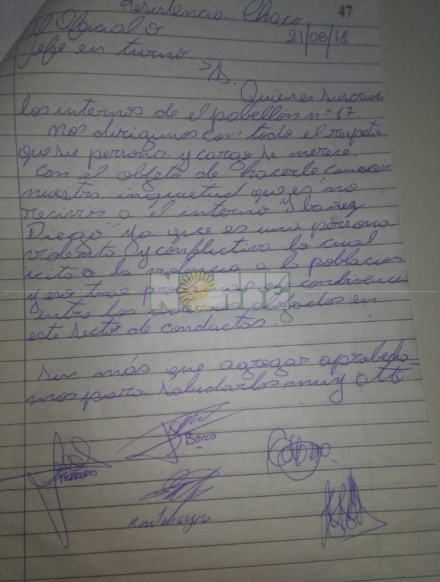 Resistencia Chaco
47
Al Oficial o
21/08/18
Jefe en turno.
S/D.
Quienes suscriben
los internos de el pabellon n° 17
nos dirigimos con todo el respeto
que su persona y cargo se merece
Con el objeto de hacerle conocer
nuestra inquietud que es no
recivir a el interno "Ibañez
Diego" ya que es una persona
violenta y conflictiva lo cual
icita a la violencia a la poblacion
y eso trae problemas de convivencia
entre los internos alojados en
este sector de conductas.
Sin más que agregar aprobecha-
mos para saludarlos muy atte.
FERRERO
BORDO
Montenegro